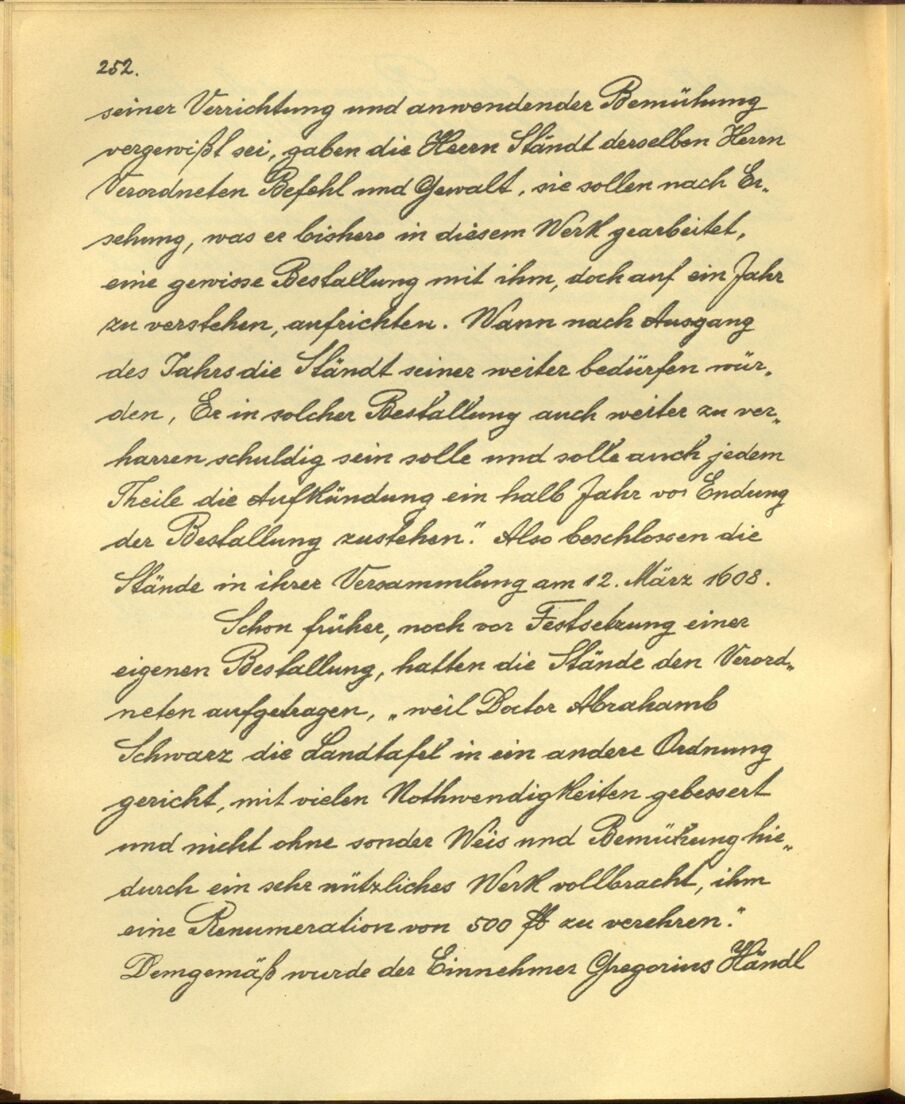 252.
seiner Verrichtung und anwendender Bemühung
vergewißt sei, gaben die Herrn Ständt derselben Herrn
Verordneten Befehl und Gewalt, sie sollen nach Er„
sehung, was er bishero in diesem Werk gearbeitet,
eine gewisse Bestallung mit ihm, doch auf ein Jahr
zu verstehen, aufrichten. Wann nach Ausgang
des Jahrs die Ständt seiner weiter bedürfen wür„
den, Er in solcher Bestallung auch weiter zu ver„
harren schuldig sein solle und solle auch jedem
Theile die Aufkündung ein halb Jahr vor Endung
der Bestallung zustehen.“ Also beschlossen die
Stände in ihrer Versammlung am 12. März 1608.
Schon früher, noch vor Festsetzung einer
eigenen Bestallung, hatten die Stände den Verord„
neten aufgetragen, „weil Doctor Abrahamb
Schwarz die Landtafel in ein andere Ordnung
gericht, mit vielen Nothwendigkeiten gebessert
und nicht ohne sonder Weis und Bemühung hie„
durch ein sehr nützliches Werk vollbracht, ihm
eine Renumeration von 500 fl zu verehren.“
Demgemäß wurde der Einnehmer Gregorius Händl